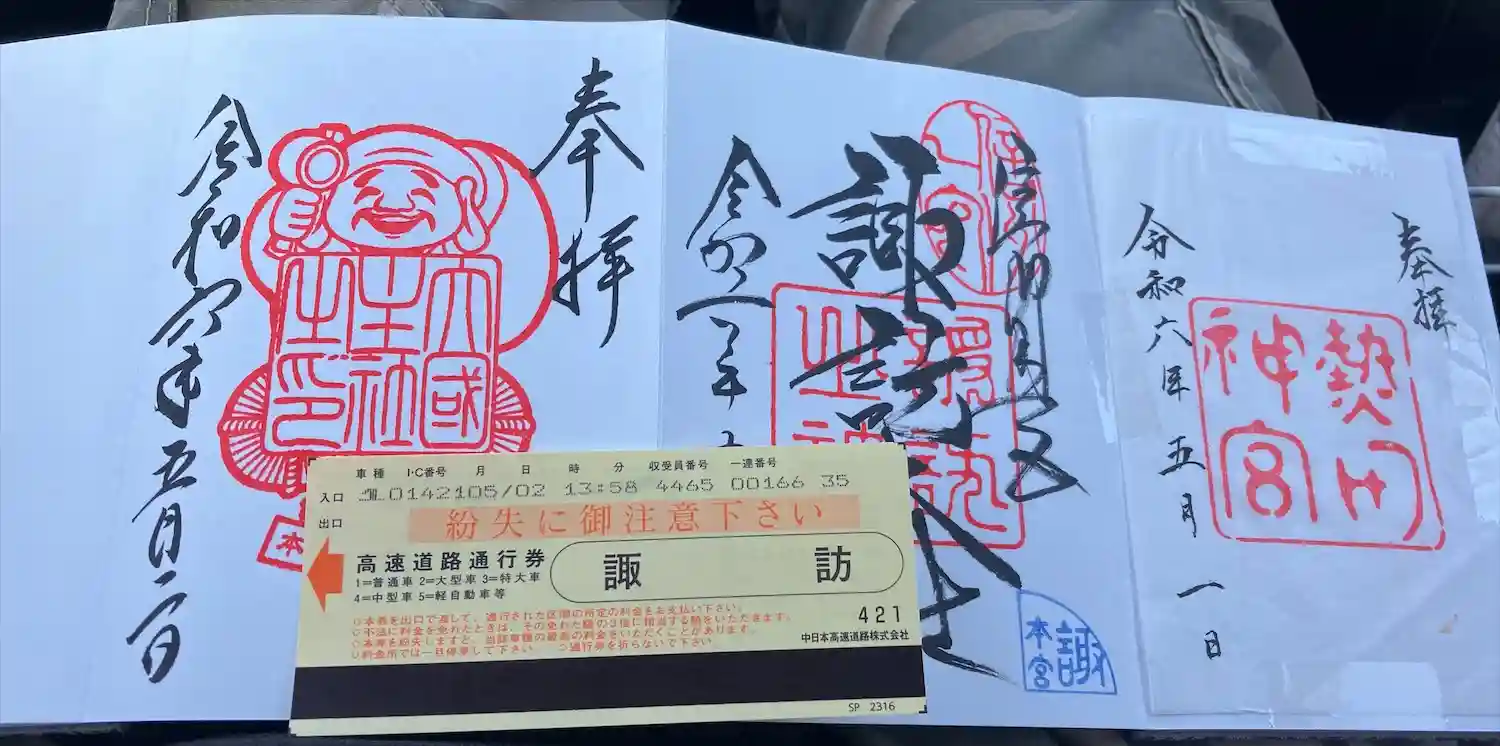 奉拝
熱田
神宮
令和六年五月一日
諏訪大社
令和六年
諏
本宮
奉拝
大國
主社
之印
本
令和六年五月二日
車種 I・C番号 月 日 時 分 収受員番号 一連番号
入口 0142105/02 13:58 4465 00166 35
出口 紛失に御注意下さい
高速道路通行券
諏訪
1=普通車 2=大型車 3=特大車
4=中型車 5=軽自動車等
◇本券を出口で渡して、通行された区間の所定の料金をお支払い下さい。
◇不法に料金を免れたときは、その免れた額の3倍に相当する額をいただきます。
◇本券を紛失しますと、当該車種の最高の料金をいただくことがあります。
◇料金所では一旦停車して下さい ◇通行券を折らないで下さい。
421
中日本高速道路株式会社
SP 2316